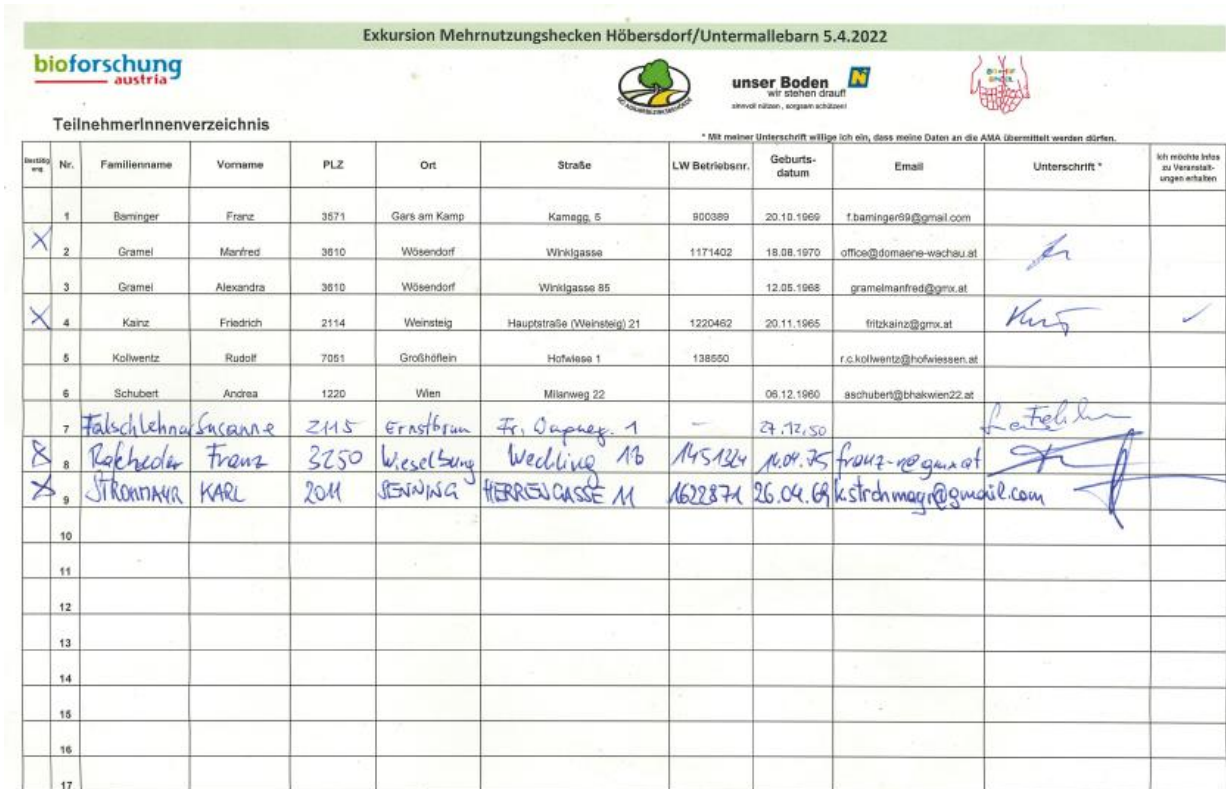 Exkursion Mehrnutzungshecken Höbersdorf/Untermallebarn 5.4.2022
bioforschung
austria
unser Boden
wir stehen drauf!
sinnvoll nützen, sorgsam schützen!
TeilnehmerInnenverzeichnis
* Mit meiner Unterschrift willige ich ein, dass meine Daten an die AMA übermittelt werden dürfen.
Bestätigung Nr. Familienname Vorname PLZ Ort Straße LW Betriebsnr. Geburts-datum Email Unterschrift * Ich möchte Infos zu Veranstalt-ungen erhalten
1 Baminger Franz 3571 Gars am Kamp Kamegg, 5 900389 20.10.1969 f.baminger69@gmail.com
X 2 Gramel Manfred 3610 Wösendorf Winklgasse 1171402 18.08.1970 office@domaene-wachau.at
3 Gramel Alexandra 3610 Wösendorf Winklgasse 85 12.05.1968 gramelmanfred@gmx.at
X 4 Kainz Friedrich 2114 Weinsteig Hauptstraße (Weinsteig) 21 1220462 20.11.1965 fritzkainz@gmx.at ✓
5 Kollwentz Rudolf 7051 Großhöflein Hofwiese 1 138550 r.c.kollwentz@hofwiessen.at
6 Schubert Andrea 1220 Wien Milanweg 22 06.12.1960 aschubert@bhakwien22.at
7 Falschlehner Susanne 2115 Ernstbrun 1 – 27.12.50
X 8 Franz 3250 Wieselburg Wechling 1451324 14.04.75 franz-r@gmx.at
X 9 KARL 2011 SENNING HERRENGASSE 11 1622871 26.04.69
10
11
12
13
14
15
16
17